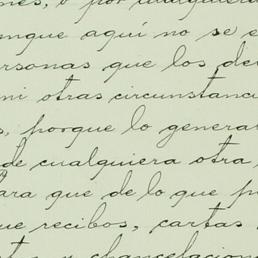 nes, o por cualquiera
unque aquí no se e
ersonas que los de
ni otras circunstanci
s, porque lo general
de cualquiera otra,
Para que de lo que p
ue recibos, cartas
chancelacion